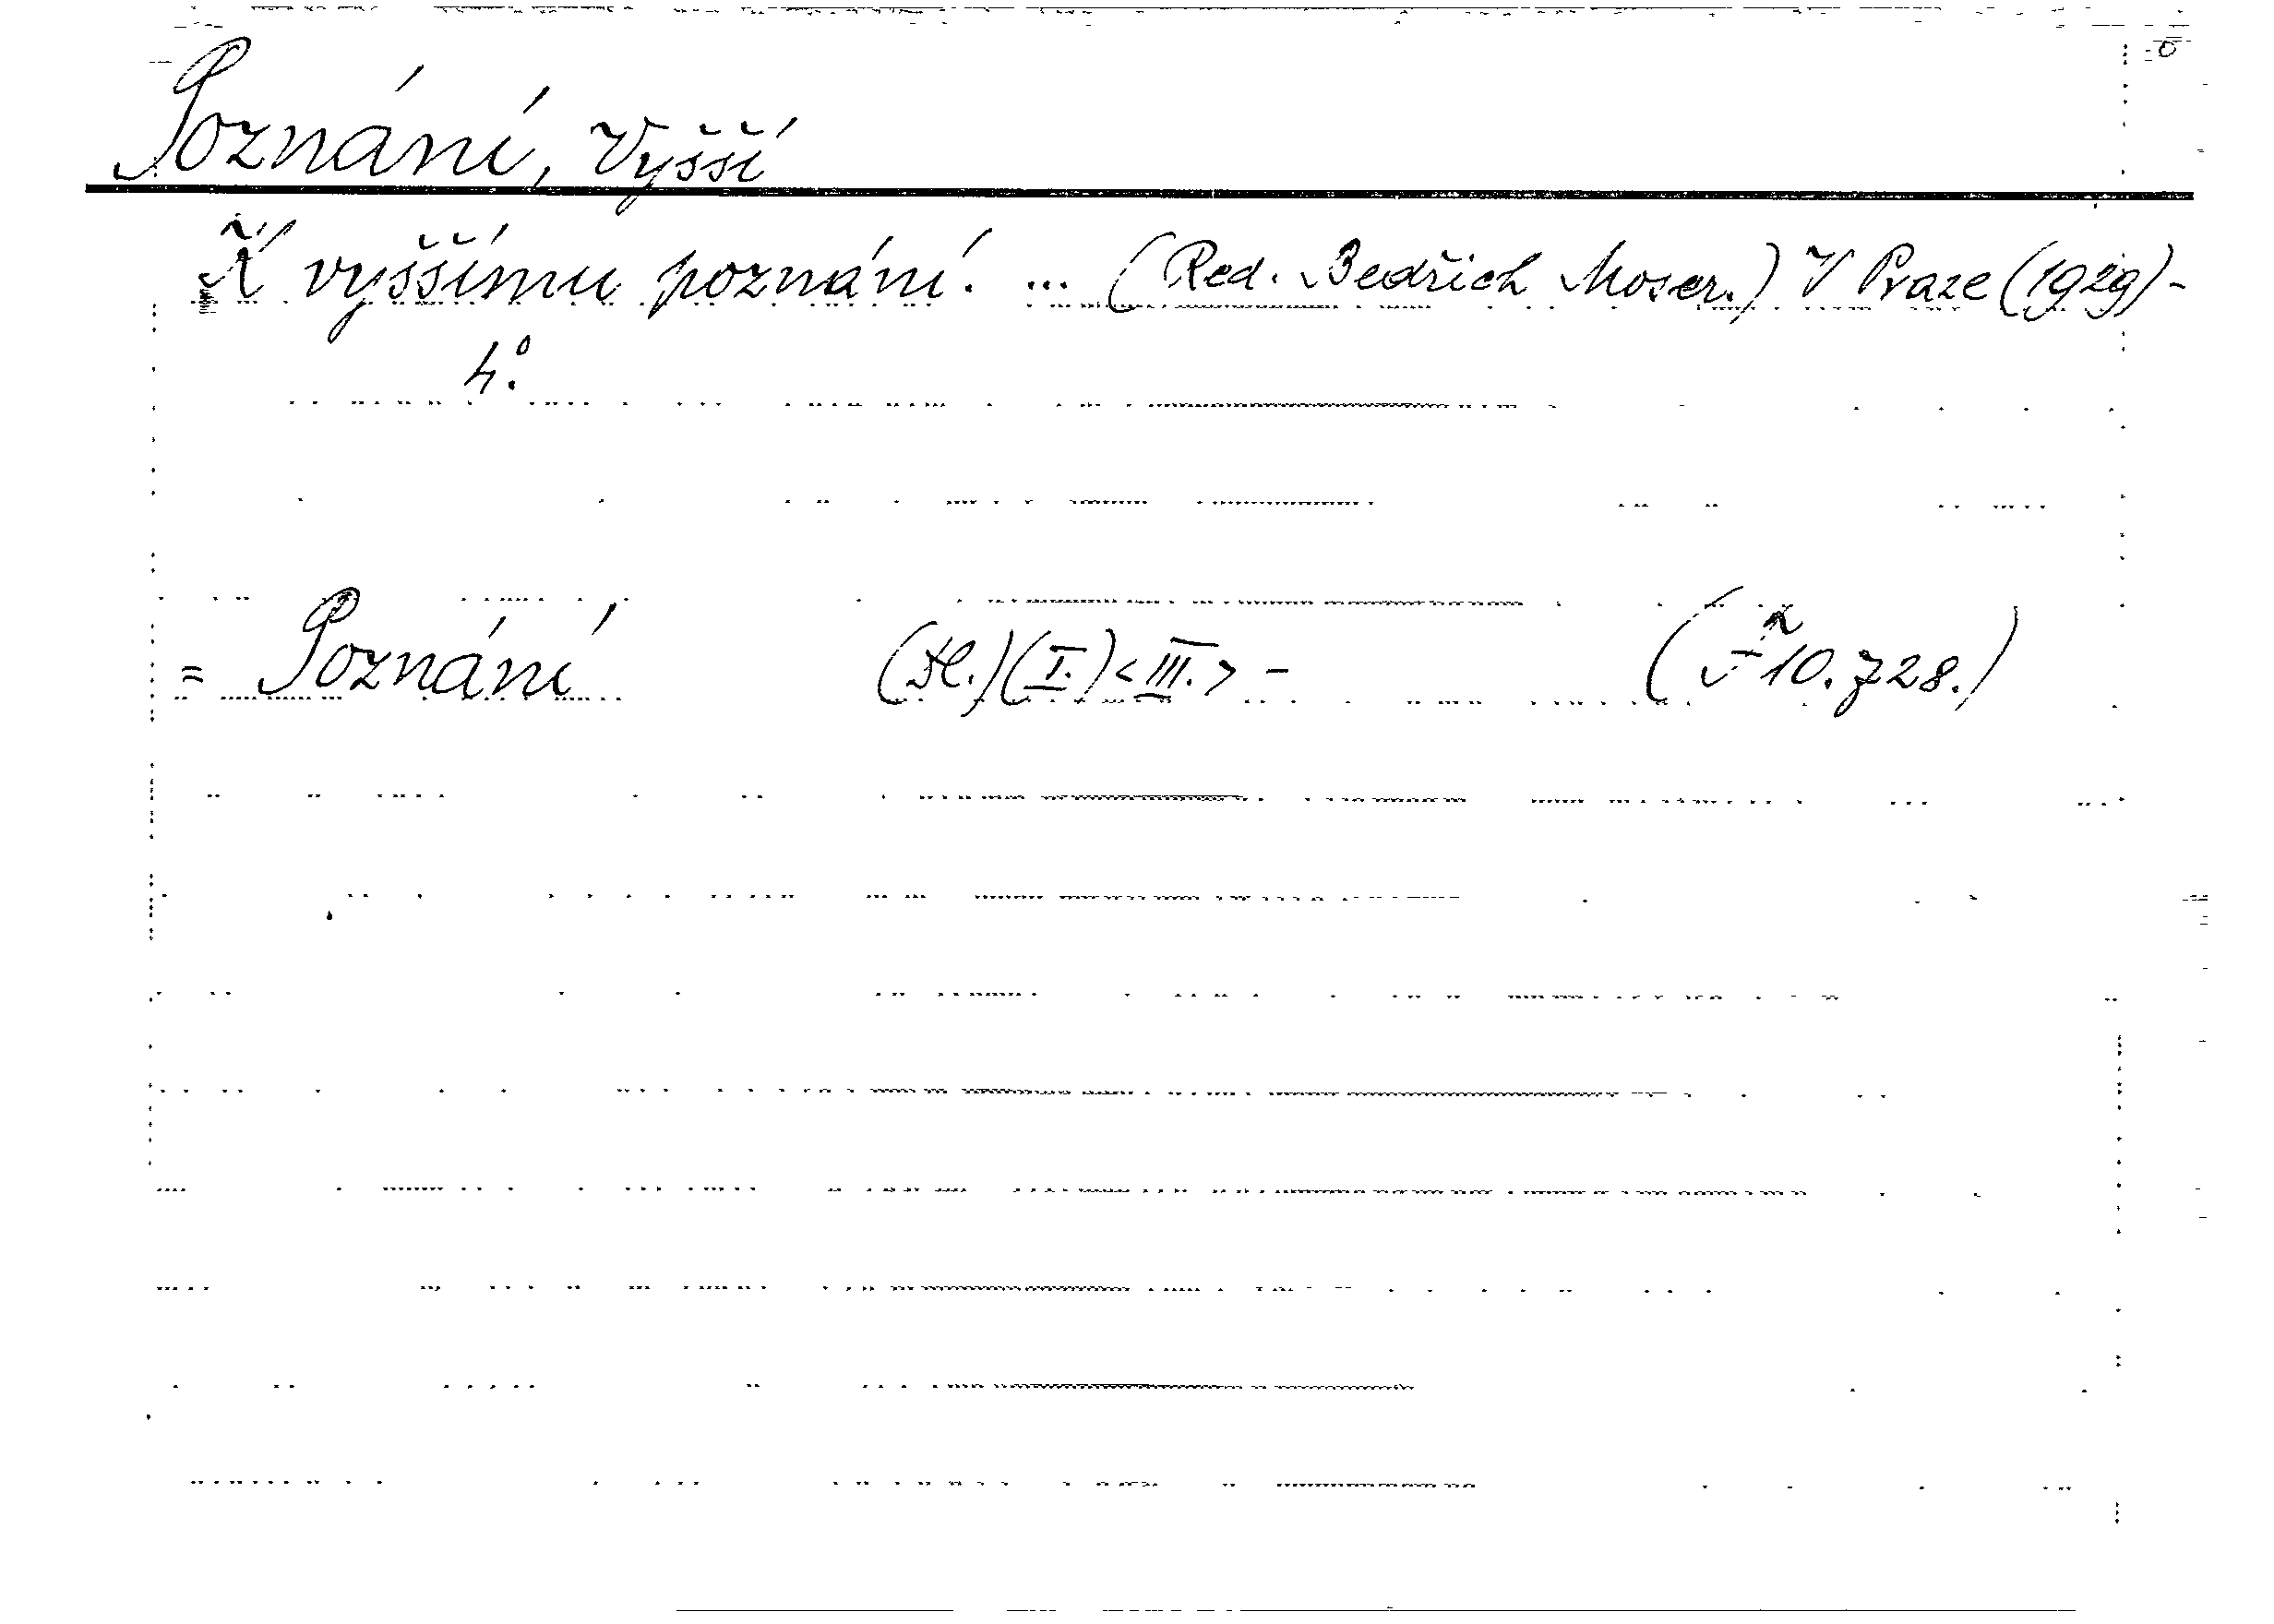 Poznání, Vyšší
K vyššímu poznání. ... (Red. Bedřich Moser.) V Praze (1929)-
4°.
= Poznání (I.) <III.> - 10.728.)